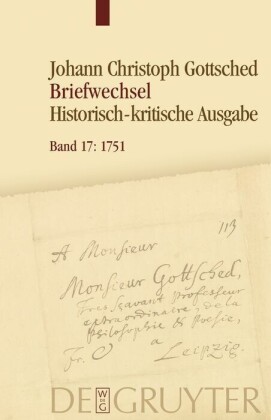 Johann Christoph Gottsched
Briefwechsel
Historisch-kritische Ausgabe
Band 17: 1751
113
A Monsieur
Monsieur Gottsched,
Tres scavant Professeur
extraordinaire, de la
Philosophie & Poesie,
Fr. a
Leipzig.
W
DE
G
DE GRUYTER